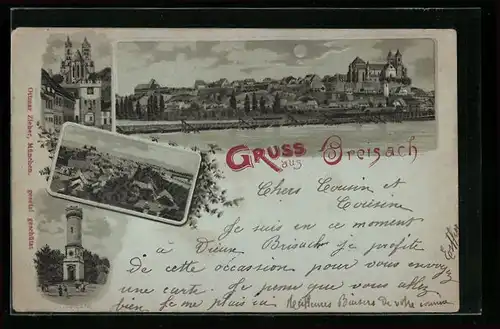 Gruss
aus
Breisach
Chers Cousin et
Cousine
Je suis en ce moment
à Vieux Brisach je profite
de cette occasion pour vous envoyez
une carte. Je pense que vous allez
bien, Je me plais ici Meilleures Baisers de votre
Ottmar Zieher, München. gesetzl geschützt